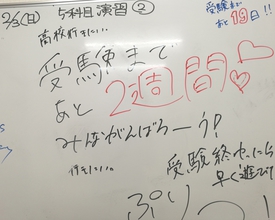 2/3(日) 5科目演習②
受験まで
あと19日!!
高校行きたい…
受験まで
あと2週間
みながんばろーう!
行きたい…
受験終わったら
早く遊び
ぷり